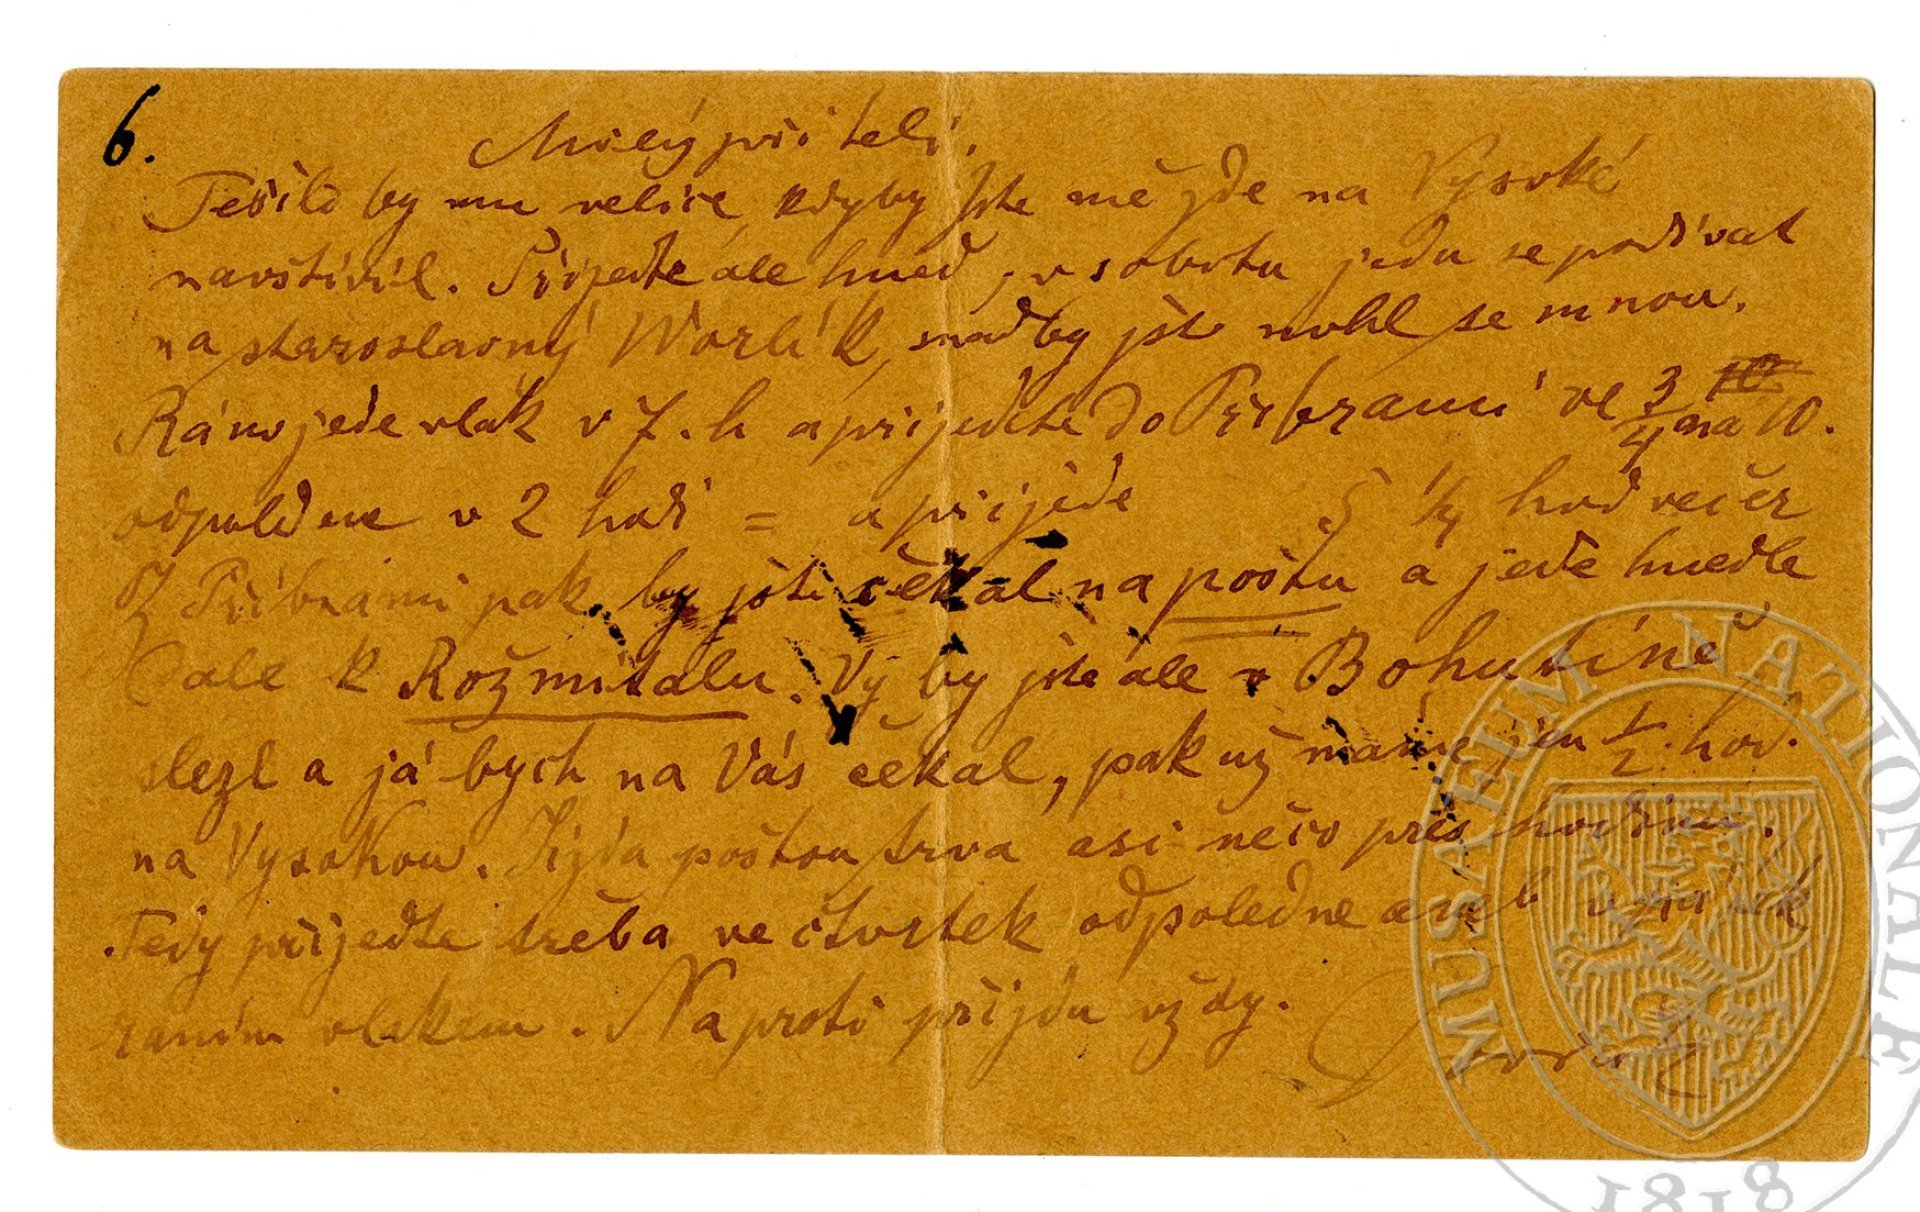 6.
Milý příteli,
Těšilo by mne velice kdyby Jste mě zde na Vysoké
navštívil. Přijeďte ale hned, v sobotu jedu se podívat
na staroslavný Worlík, snad by jste mohl se mnou.
Ráno jede vlak v 7. h a přijedete do Příbrami ve 3/4 na 10.
odpoledne v 2 hodi = a přijede 5 1/4 hod večer
Z Příbrami pak by jste čekal na poštu a jede hnedle
dale k Rožmitalu. Vy by jste ale v Bohutíně
slezl a já bych na Vás čekal, pak už máme jen 1/2 hod.
na Vysokou. Jízda poštou trva asi něco přes hodinu.
Tedy přijeďte třeba ve čtvrtek odpoledne aneb v pátek
ranním vlakem. Naproti přijdu vždy.
Dvořák
MUSAEUM NATIONALE
1818